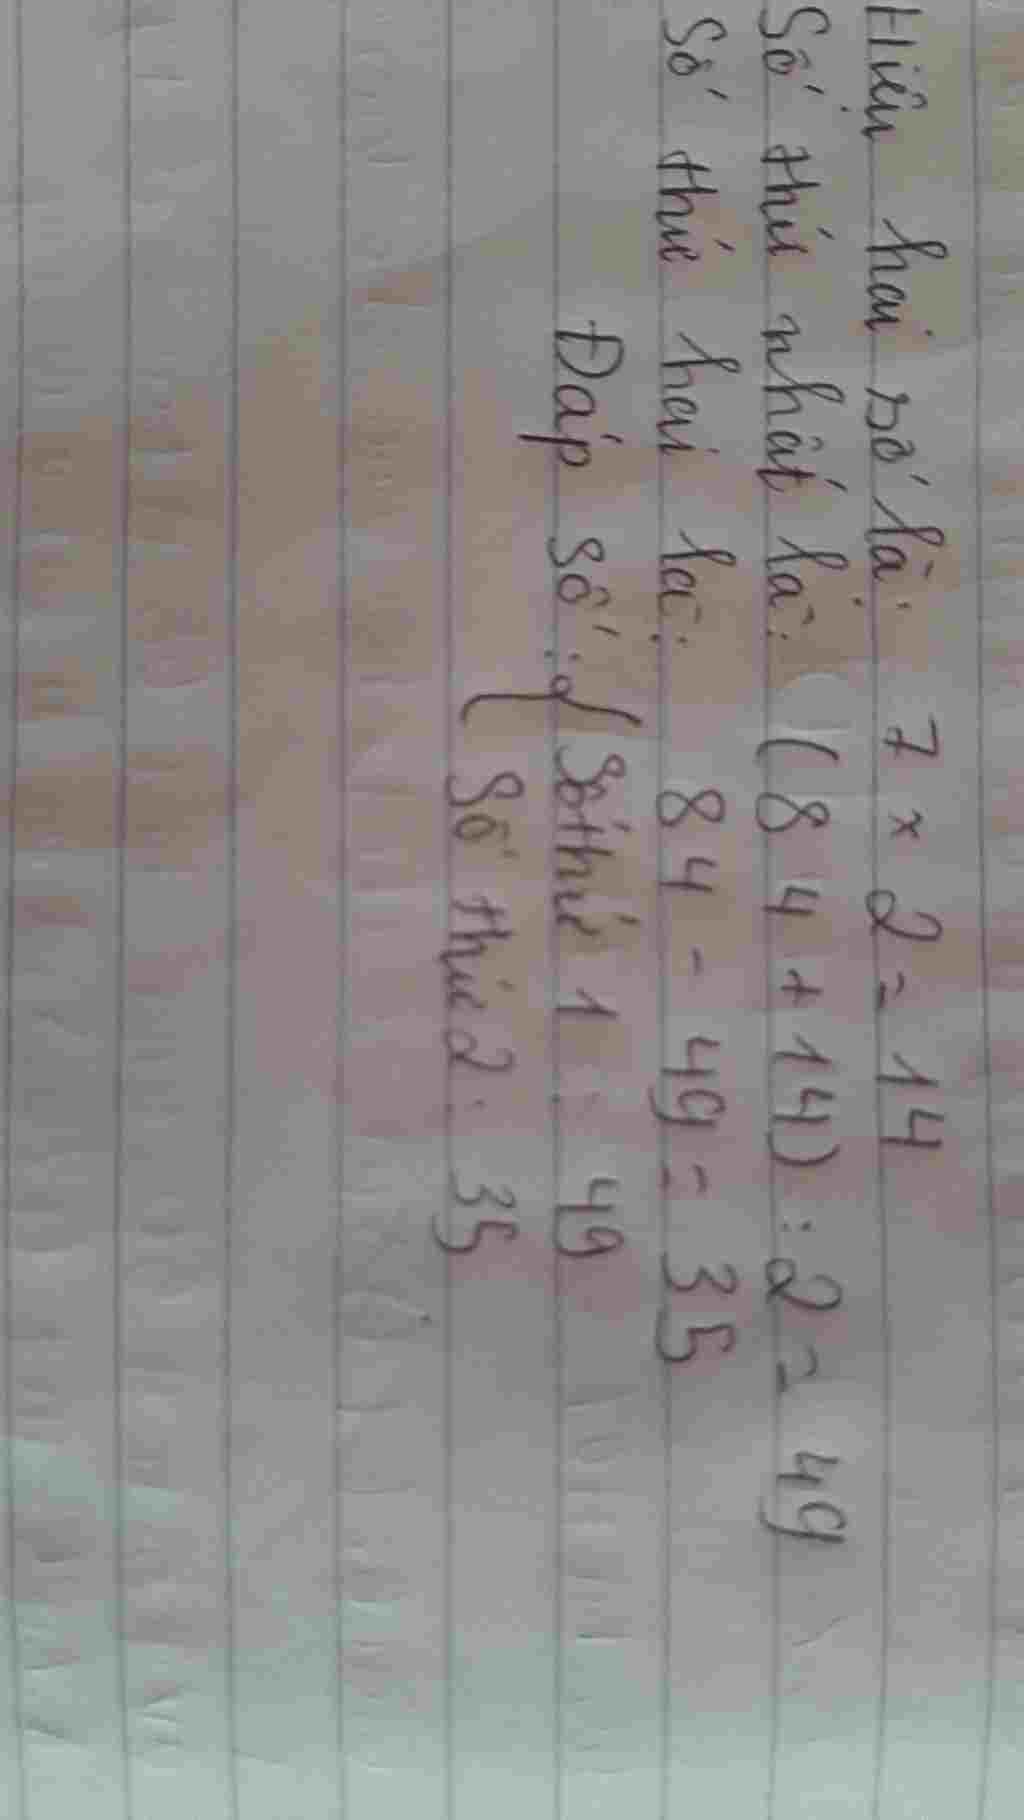 Hiệu hai số là: 7 x 2 = 14
Số thứ nhất là: (84 + 14) : 2 = 49
Số thứ hai là: 84 - 49 = 35
Đáp số: { Số thứ 1: 49
Số thứ 2: 35